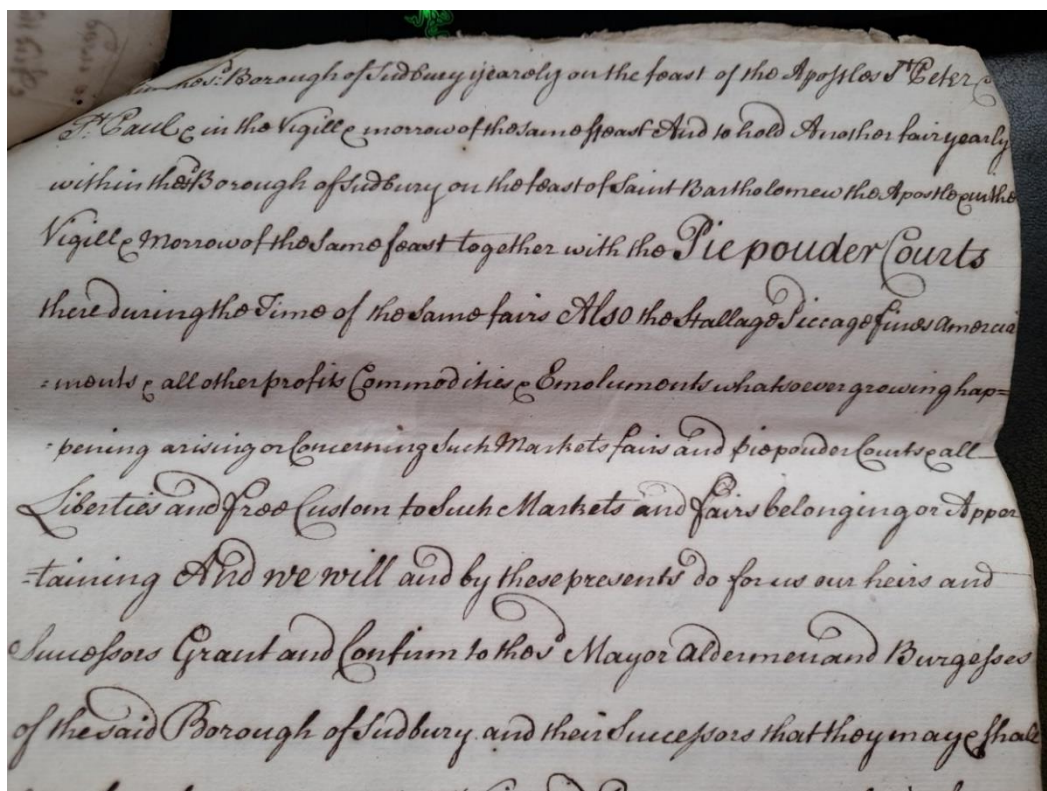 the sd. Borough of Sudbury yearely on the feast of the Apostles St. Peter &
St. Paul & in the Vigill & morrow of the same ffeast And to hold Another fair yearly
within the sd Borough of Sudbury on the feast of Saint Bartholomew the Apostle & in the
Vigill & Morrow of the Same feast together with the Pie pouder Courts
there during the Time of the Same fairs Also the Stallage Piccage fines amercia
=ments & all other profits Commodities & Emoluments whatsoever growing hap=
=pening arising or Concerning Such Markets fairs and piepouder Courts & all
Liberties and free Custom to Such Markets and fairs belonging or Apper
=taining And we will and by these presents do for us our heirs and
Successors Grant and Confirm to the sd Mayor Aldermen and Burgesses
of the said Borough of Sudbury and their Successors that they may & shall